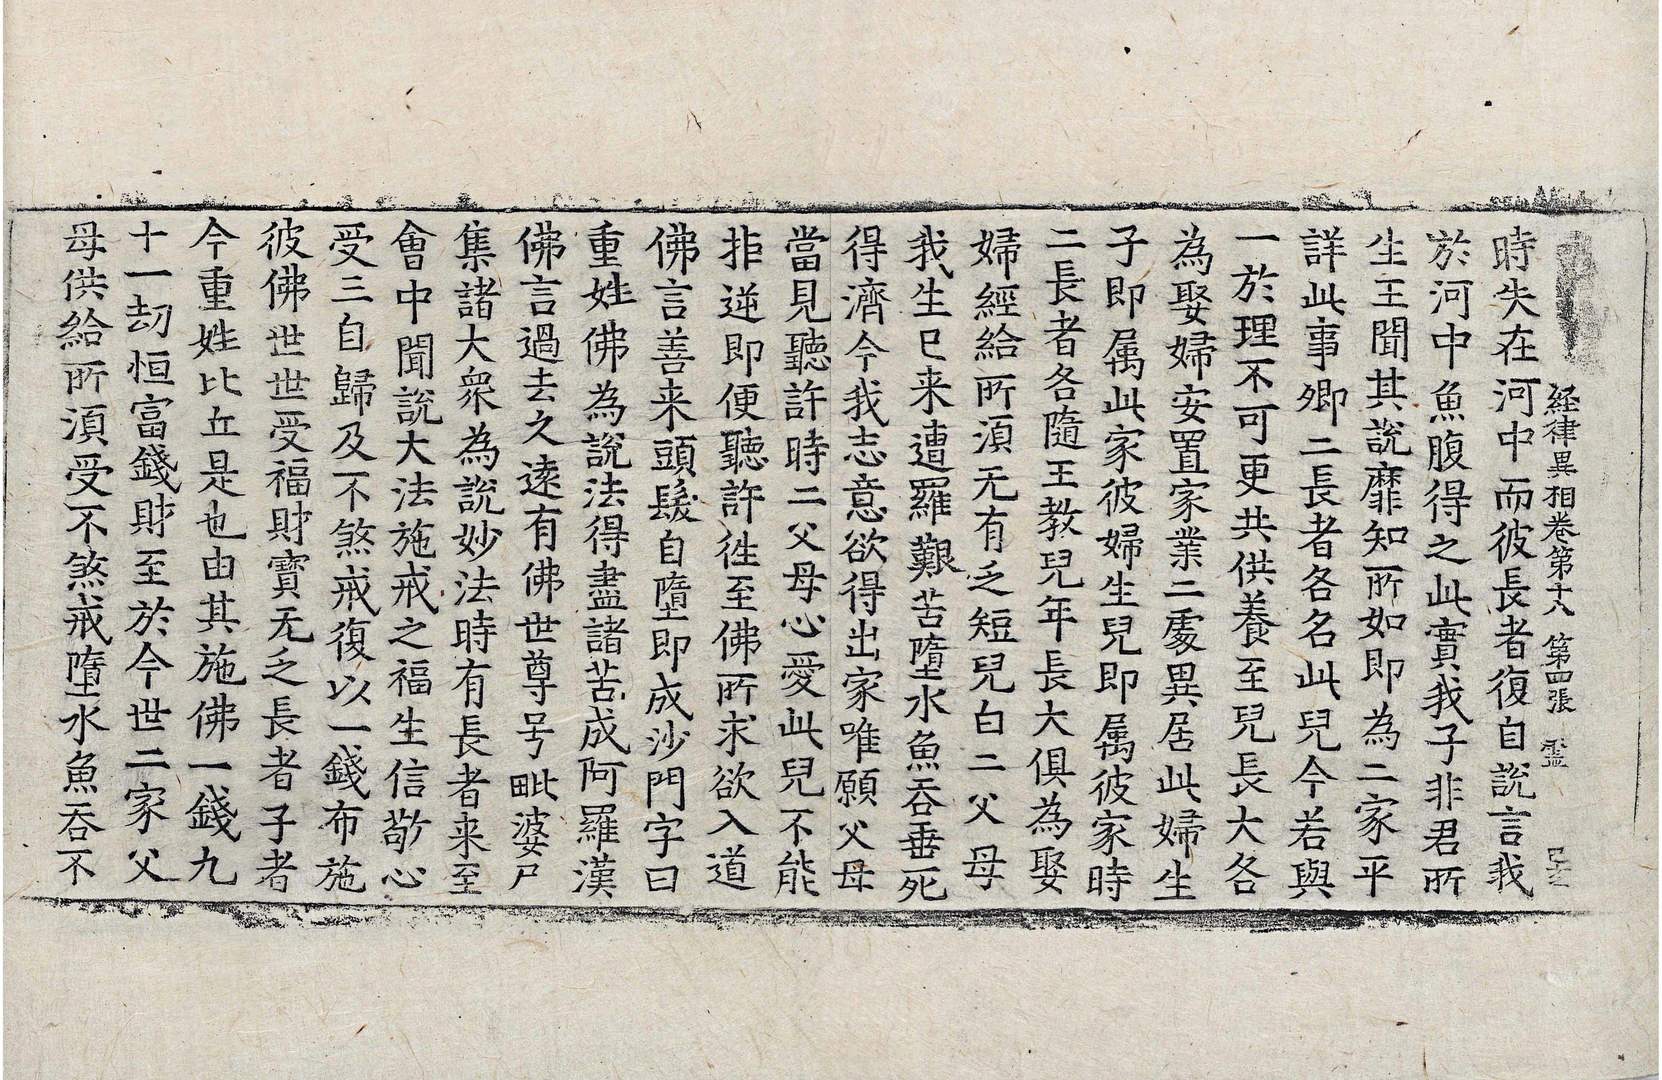 経律異相卷第十八 第四張 霊
時失在河中而彼長者復自說言我
於河中魚腹得之此實我子非君所
生王聞其說靡知所如即為二家平
詳此事卿二長者各名此兒今若與
一於理不可更共供養至兒長大各
為娶婦安置家業二處異居此婦生
子即属此家彼婦生兒即属彼家時
二長者各隨王教兒年長大俱為娶
婦經給所湏无有乏短兒白二父母
我生已来遭羅艱苦墮水魚吞垂死
得濟今我志意欲得出家唯願父母
當見聽許時二父母心愛此兒不能
拒逆即便聽許徃至佛所求欲入道
佛言善来頭髮自墮即成沙門字曰
重姓佛為說法得盡諸苦成阿羅漢
佛言過去久遠有佛世尊号毗婆尸
集諸大衆為說妙法時有長者来至
會中聞說大法施戒之福生信敬心
受三自歸及不煞戒復以一錢布施
彼佛世世受福財寶无乏長者子者
今重姓比丘是也由其施佛一錢九
十一劫恒富錢財至於今世二家父
母供給所湏受不煞戒墮水魚吞不